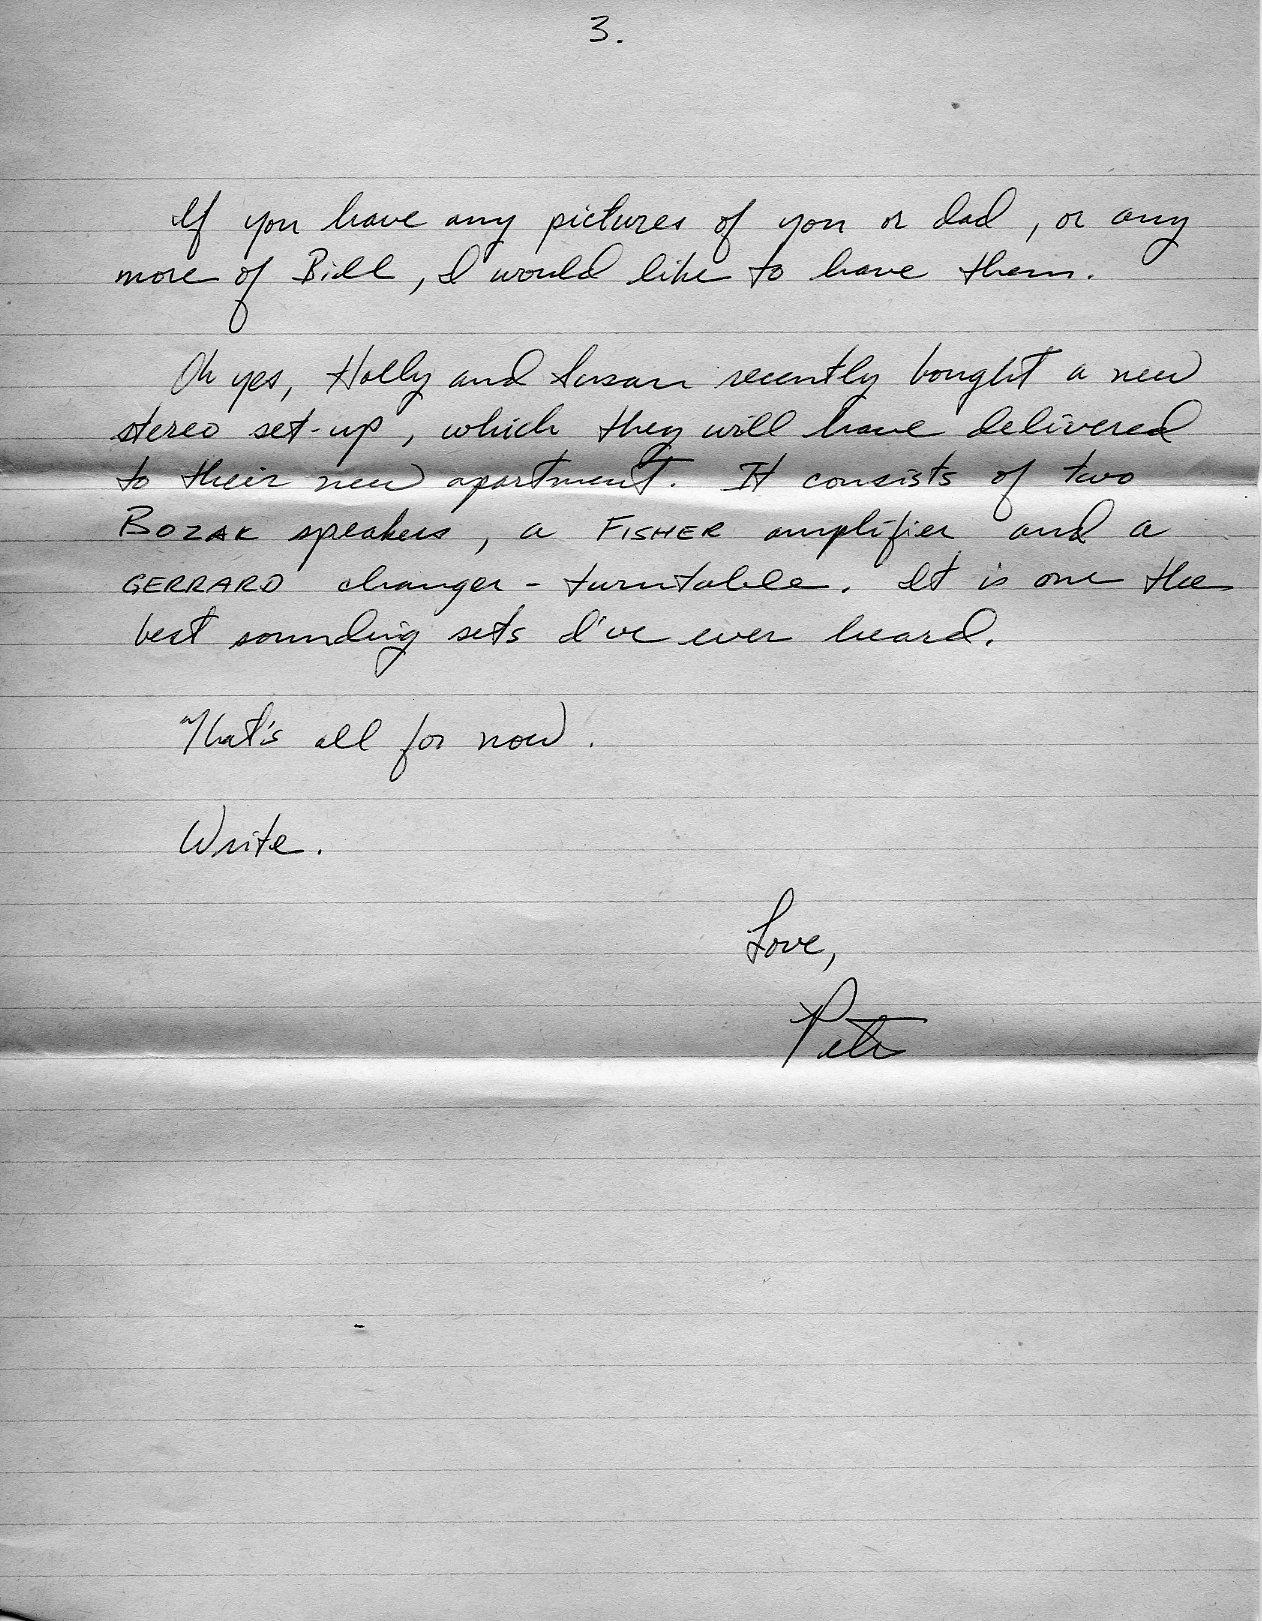 3.
If you have any pictures of you or dad, or any
more of Bill, I would like to have them.
Oh yes, Holly and Susan recently bought a new
stereo set-up, which they will have delivered
to their new apartment. It consists of two
BOZAK speakers, a FISHER amplifier and a
GERRARD changer - turntable. It is one the
best sounding sets I've ever heard.
That's all for now.
Write.
Love,
Pete